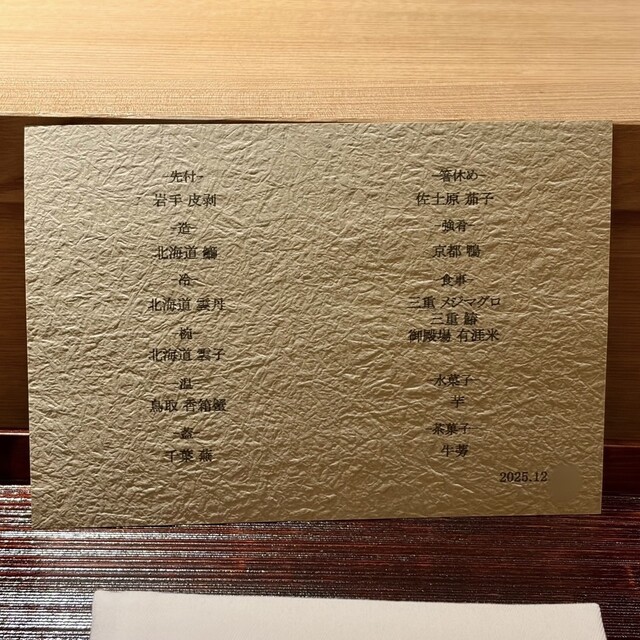 -先付-
岩手 皮剥
-造-
北海道 鰤
-冷-
北海道 雲丹
-椀-
北海道 雲子
-温-
鳥取 香箱蟹
-蒸-
千葉 蕪
-箸休め-
佐土原 茄子
-強肴-
京都 鴨
-食事-
三重 メジマグロ
三重 鰆
御殿場 有涯米
-水菓子-
芋
-茶菓子-
牛蒡
2025.12